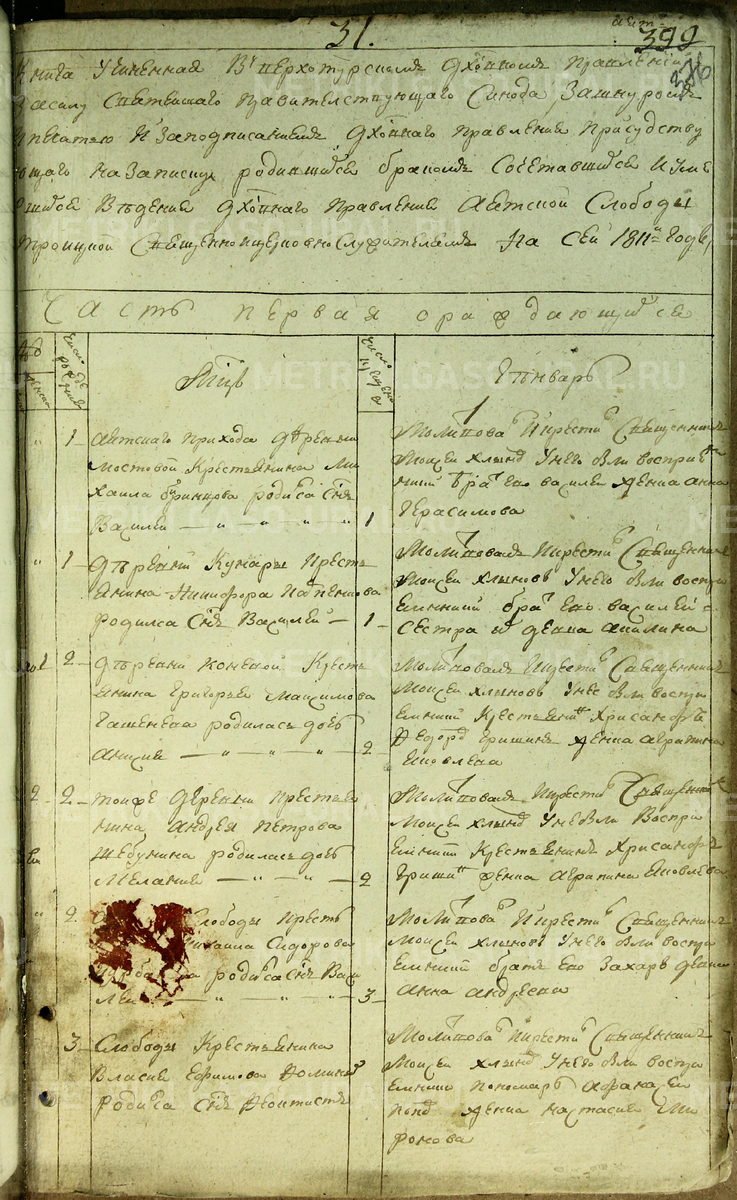 31.
399
386
Книга Учиненная Въ Верхотурскомъ Духовномъ Правлении
Святейшаго Правителствующаго Синода За шнуромъ
Печатью И Заподписаниемъ Духовнаго Правления Присудству
ющаго На Записку родившихся бракомъ Сочетавшихся И уме
ршихся Ведения Духовнаго Правления Аятской Слободы
Троицкой Священноцерковнослужителямъ На Сей 1811й Годъ
Часть первая о раждающихся
Число рождения
Число крещения
Генварь
1 Аятскаго Прихода деревни
Мостовой Крестьянина Ми
хаила родился Сынъ
Василей 1
Молитвовалъ И крестилъ Священникъ
Моисей Хлыновъ У него были восприем
ники братъ Его василей девица анна
Герасимова
1 деревни Кунары Кресть
янина Никифора
родился Сынъ Василей 1
Молитвовалъ И крестилъ Священникъ
Моисей Хлыновъ У него были воспри
емники братъ Его василей
Сестра Его девица акилина
2 деревни Коневой Кресть
янина Григорья Максимова
родилась дочь
Анисия 2
Молитвовалъ И крестилъ Священникъ
Моисей Хлыновъ У нее были воспри
емники Крестьянинъ Хрисанфъ
Федоровъ Гришинъ девица Аграпина
Яковлева
2 Тоиже деревни Крестья
нина Андрея Петрова
Шебунина родилась дочь
Мелания 2
Молитвовалъ И крестилъ Священникъ
Моисей Хлыновъ У нее были Воспри
емники Крестьянинъ Хрисанфъ
Гришинъ девица Аграпина Яковлева
2 Слободы Кресть
Михаила Сидорова
родился Сынъ Васи
лей 3
Молитвовалъ И крестилъ Священникъ
Моисей Хлыновъ У него были воспри
емники братъ Его Захаръ девица
Анна Андреева
3 Слободы Крестьянина
Власия Ефимова Фоминыхъ
родился Сынъ Феоктистъ
Молитвовалъ И крестилъ Священникъ
Моисей Хлыновъ У него были воспри
емники Пономарь Афанасей
Поповъ девица Настасия Ники
форова
METRIK.GASO-URAL.RU